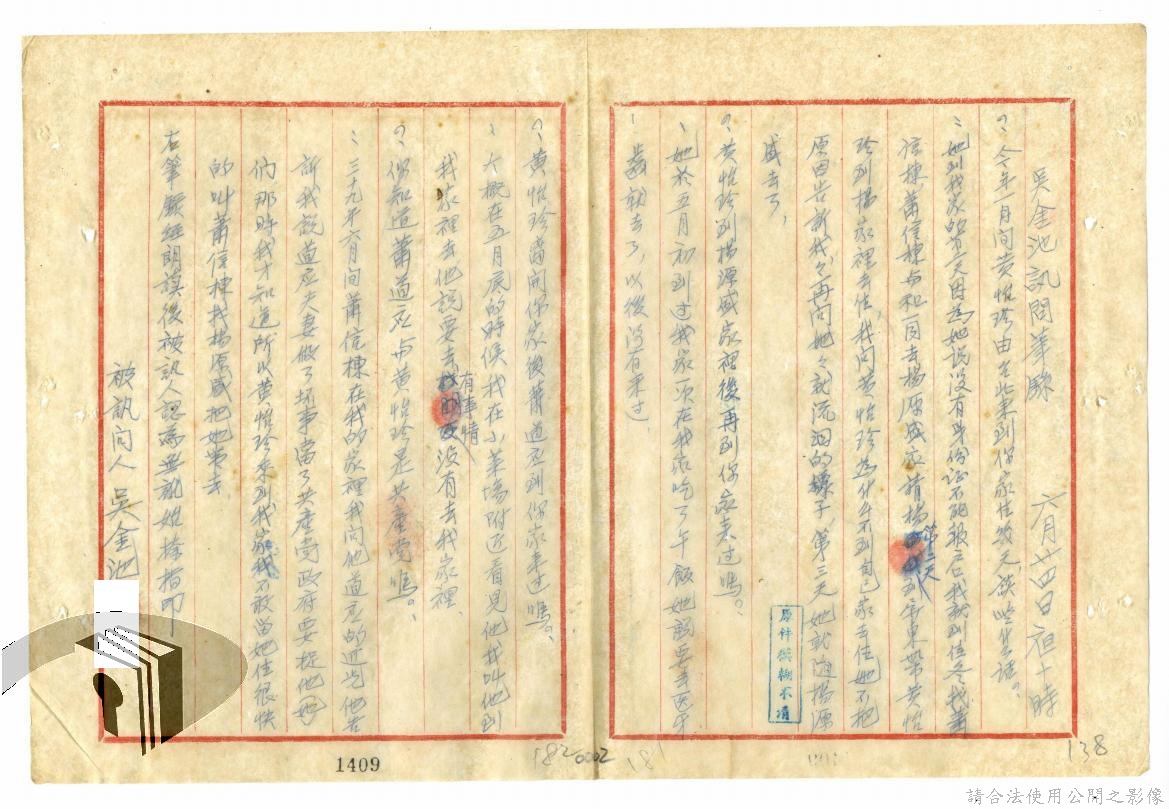 吳金池訊問筆錄 六月廿四日夜十時
? 今年一月間黃怡珍由台北來到你家住幾天談些什話。
: 她到我家的第一天因為她說沒有身份證不能報戶我就到住冬找蕭
信棟,蕭信棟与和一同去楊源盛家請楊第二天到 車 帶黃怡
珍到楊家裡去住,我问黃怡珍為什么不到自己家去住她不把
原因告訴我,今再问她々就流泪的樣子,第三天她就隨楊源
盛去了,
? 黃怡珍到楊源盛家裡後再到你家來过嗎。
: 她於五月初到过我家一次在我家吃了午飯她說要去医牙
齒就去了,以後沒有來过,
? 黃怡珍离開你家後蕭道应到你家來过嗎。
: 大概在五月底的時候我在小菜場附近看見他我叫他到
我家裡去他說要去有事情沒有去我家裡,
? 你知道蕭道应与黃怡珍是共產党嗎。
: 三十九年六月间蕭信棟在我的家裡我问他道应的近况他告
訴我說道应夫妻做了坏事當了共產党政府要捉他(她)
们那時我才知道所以黃怡珍來到我家我不敢留她住很快
的叫蕭信棟找楊源盛把她帶去
右筆錄經朗讀後被訊人認為無訛始捺指印
被訊问人 吳金池
原件模糊不清
1409
182
0002
181
138
請合法使用公開之影像